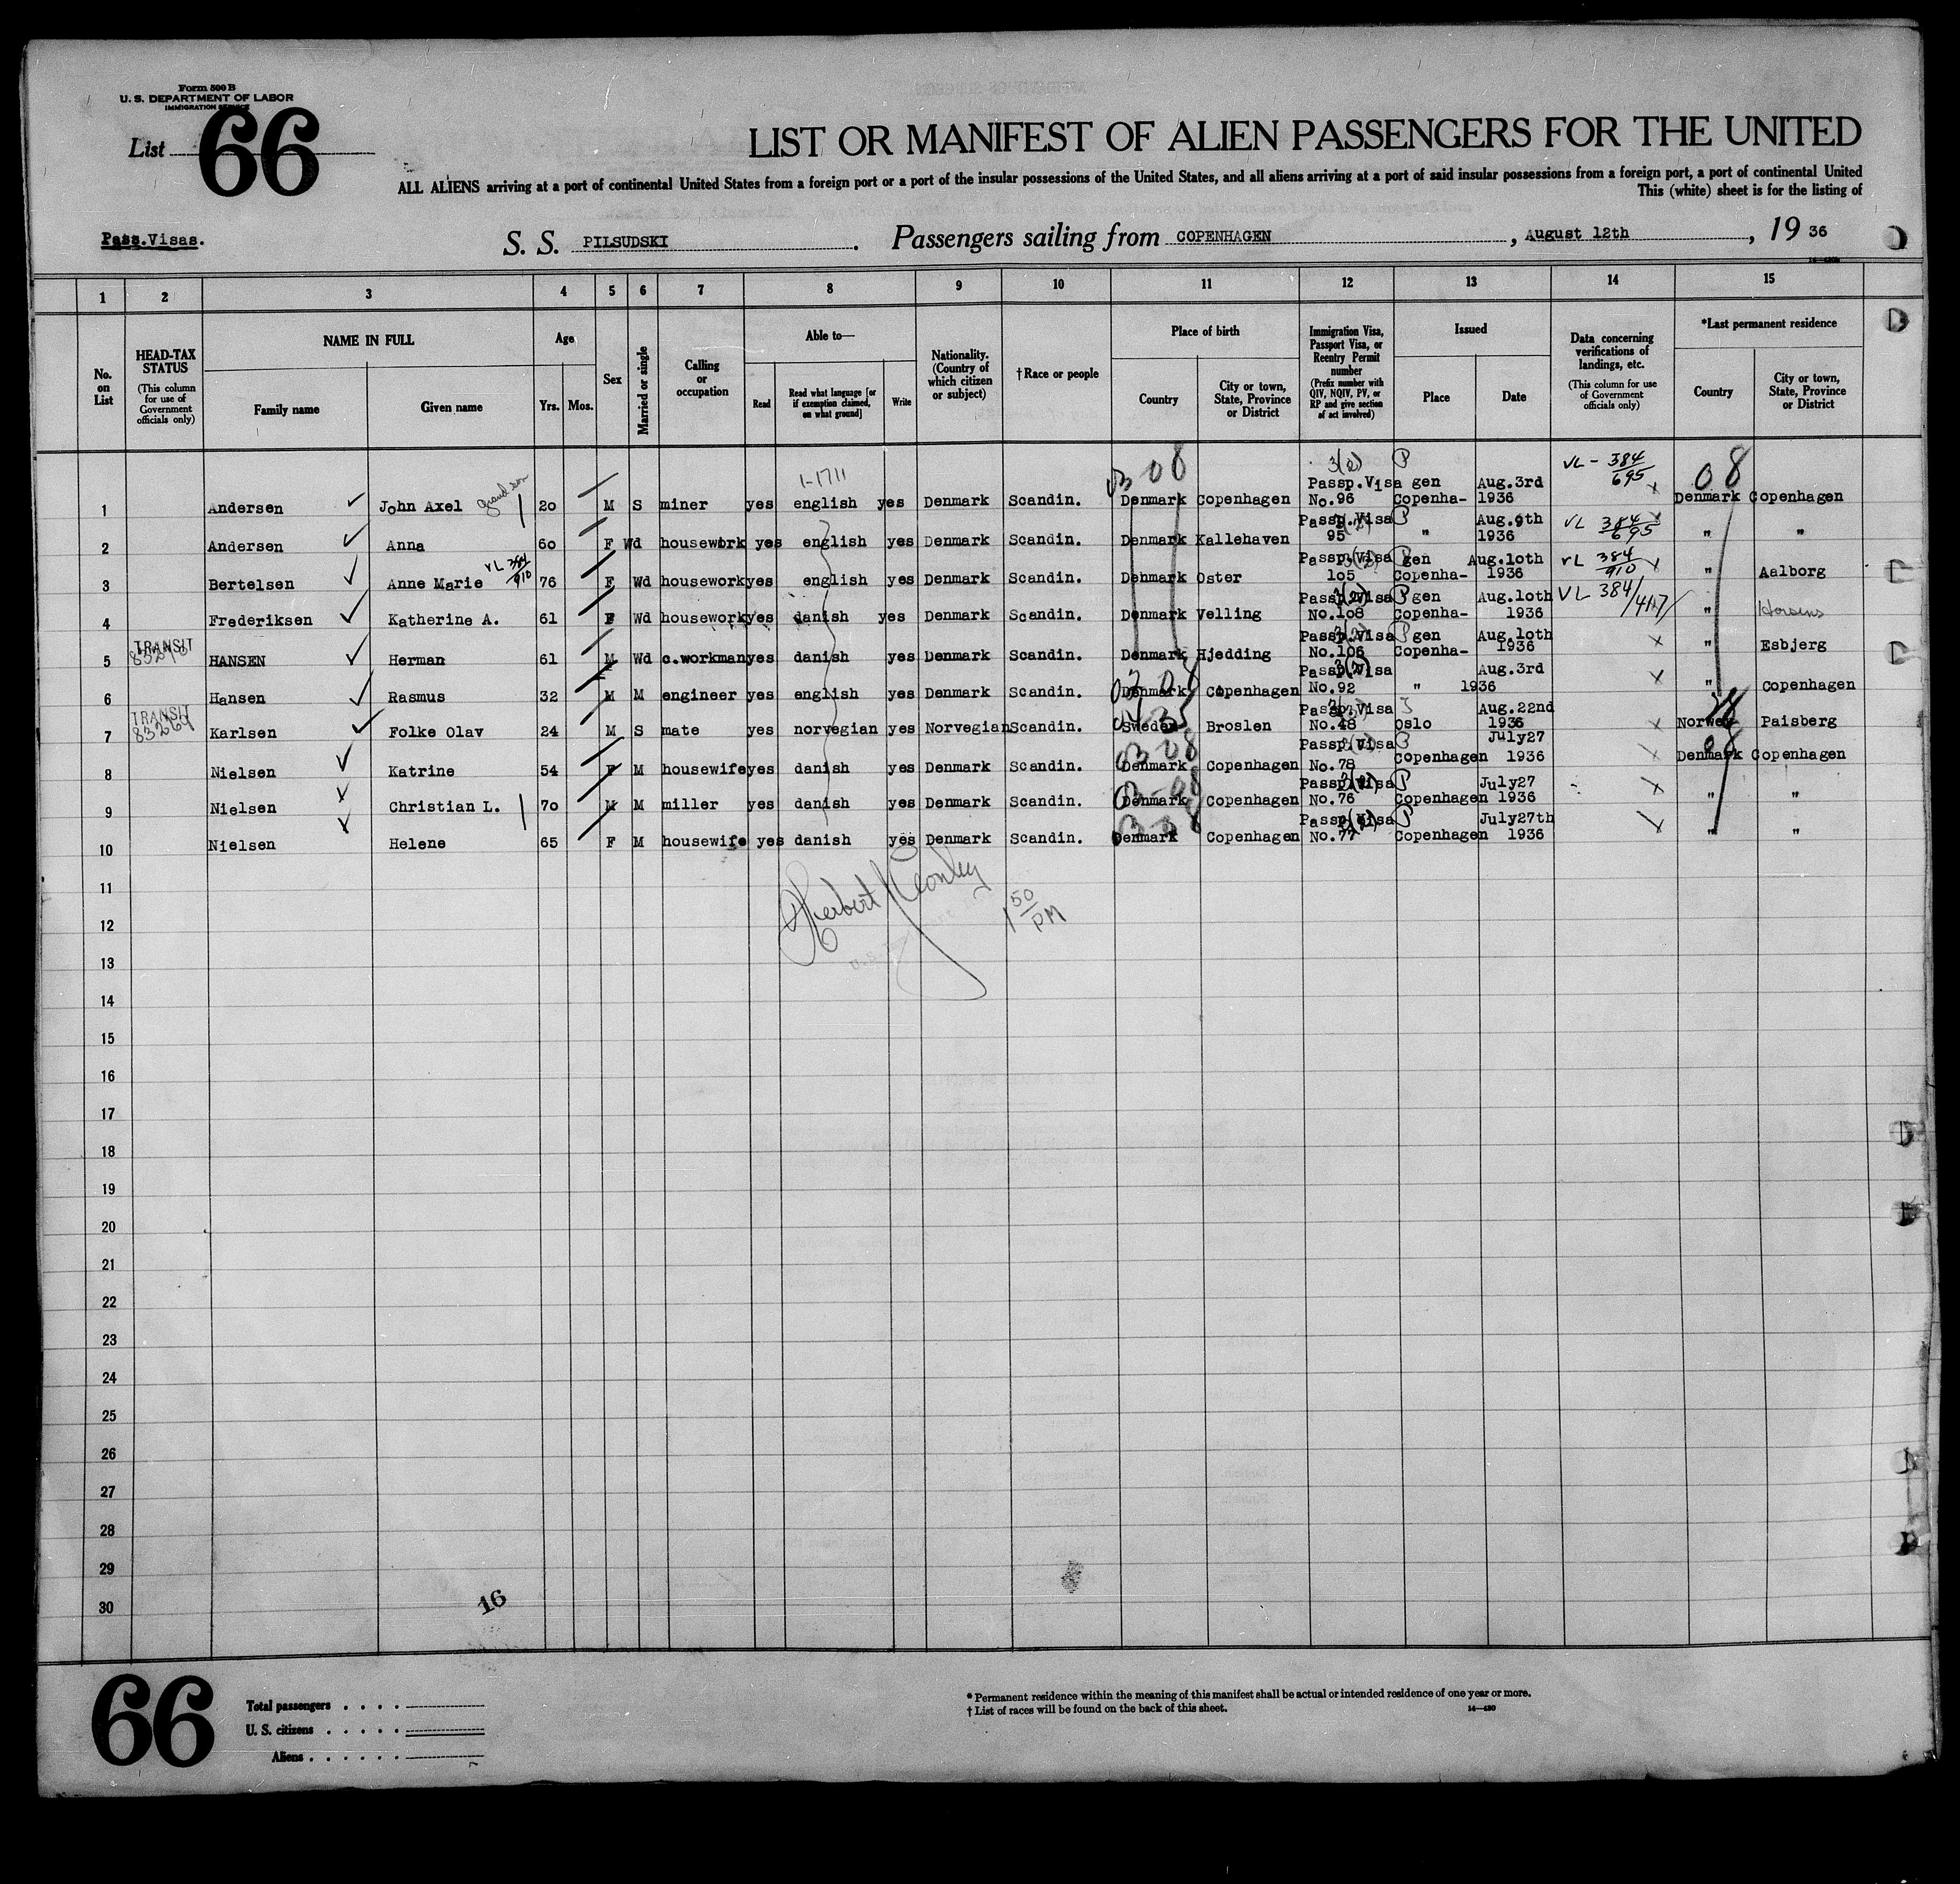 Form 500 B
U. S. DEPARTMENT OF LABOR
IMMIGRATION SERVICE
List 66
LIST OR MANIFEST OF ALIEN PASSENGERS FOR THE UNITED
ALL ALIENS arriving at a port of continental United States from a foreign port or a port of the insular possessions of the United States, and all aliens arriving at a port of said insular possessions from a foreign port, a port of continental United
This (white) sheet is for the listing of
Pass.Visas.
S. S. PILSUDSKI. Passengers sailing from COPENHAGEN, August 12th, 19 36
1 2 3 4 5 6 7 8 9 10 11 12 13 14 15
No. on List
HEAD-TAX STATUS (This column for use of Government officials only)
NAME IN FULL
Family name Given name
Age
Yrs. Mos.
Sex
Married or single
Calling or occupation
Able to—
Read Read what language [or if exemption claimed, on what ground] Write
Nationality. (Country of which citizen or subject)
†Race or people
Place of birth
Country City or town, State, Province or District
Immigration Visa, Passport Visa, or Reentry Permit number (Prefix number with QIV, NQIV, PV, or RP and give section of act involved)
Issued
Place Date
Data concerning verifications of landings, etc. (This column for use of Government officials only)
*Last permanent residence
Country City or town, State, Province or District
1-1711 08 3(2) P VL - 384/695 08
1 Andersen John Axel grandson 20 M S miner yes english yes Denmark Scandin. Denmark Copenhagen Passp.Visa No.96 gen Copenha- Aug.3rd 1936 Denmark Copenhagen
2 Andersen Anna 60 F Wd housework yes english yes Denmark Scandin. Denmark Kallehaven Passp.Visa 95 P " Aug.9th 1936 VL 384/695 " "
3 Bertelsen Anne Marie VL 384/910 76 F Wd housework yes english yes Denmark Scandin. Denmark Oster Passp.Visa 105 P gen Copenha- Aug.10th 1936 VL 384/910 " Aalborg
4 Frederiksen Katherine A. 61 F Wd housework yes danish yes Denmark Scandin. Denmark Velling Passp.Visa No.108 P gen Copenha- Aug.10th 1936 VL 384/417 " Horsens
5 TRANSIT HANSEN Herman 61 M Wd c.workman yes danish yes Denmark Scandin. Denmark Hjedding Passp.Visa No.106 P gen Copenha- Aug.10th 1936 " Esbjerg
6 Hansen Rasmus 32 M M engineer yes english yes Denmark Scandin. Denmark Copenhagen Passp.Visa No.92 " Aug.3rd 1936 " Copenhagen
7 TRANSIT 83269 Karlsen Folke Olav 24 M S mate yes norvegian yes Norvegian Scandin. Sweden Broslen Passp.Visa No.48 Oslo Aug.22nd 1936 Norwey Paisberg
8 Nielsen Katrine 54 F M housewife yes danish yes Denmark Scandin. Denmark Copenhagen Passp.Visa No.78 Copenhagen July27 1936 Denmark Copenhagen
9 Nielsen Christian L. 70 M M miller yes danish yes Denmark Scandin. Denmark Copenhagen Passp.Visa No.76 P Copenhagen July27 1936 " "
10 Nielsen Helene 65 F M housewife yes danish yes Denmark Scandin. Denmark Copenhagen Passp.Visa No.77 P Copenhagen July27th 1936 " "
11
Herbert 1 50 PM
12
13
14
15
16
17
18
19
20
21
22
23
24
25
26
27
28
29
30
16
66
Total passengers
U. S. citizens
Aliens
* Permanent residence within the meaning of this manifest shall be actual or intended residence of one year or more.
† List of races will be found on the back of this sheet.
14—430